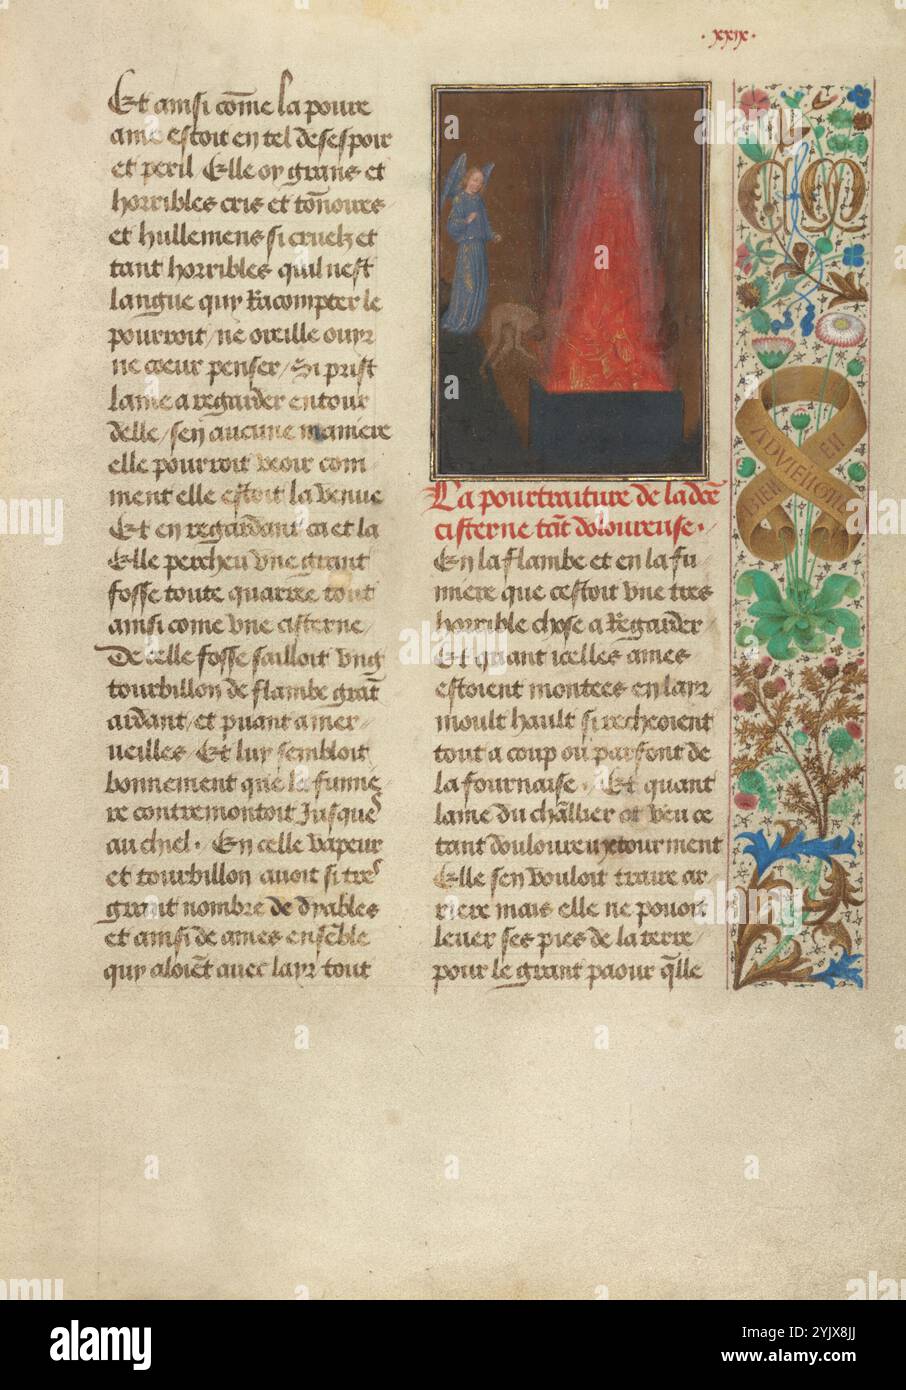 · xxix ·
Et ainsi com̄e la poure
ame estoit en tel desespoir
et peril Elle oy grans et
horribles cris et ton̄oires
et hullemens si cruelz et
tant horribles quil nest
langue quy Racompter le
pourroit / ne oreille ouyr
ne coeur penser / Si prist
lame a regarder entour
delle / sen aucune maniere
elle pourroit veoir com
ment elle estoit la venue
Et en regardant ca et la
Elle percheu vne grant
fosse toute quarree tout
ainsi come vne cisterne /
De celle fosse sailloit vng
tourbillon de flambe grāt
ardant / et puant a mer
ueilles / Et luy sembloit
bonnement que la fumie
re contremontoit Jusques
au chiel · En celle vapeur
et tourbillon auoit si tres
grant nombre de dyables
et ainsi de ames ensēble
quy aloiēt auec layr tout
La pourtraiture de la dc̄e
cisterne tāt doloureuse ·
En la flambe et en la fu
miere que cestoit vne tres
horrible chose a Regarder
Et quant icelles ames
estoient montees en layr
moult hault si recheoient
tout a coup ou parfont de
la fournaise · Et quant
lame du chl̄lier ot veu ce
tant douloureux tourment
Elle sen vouloit traire ar
riere mais elle ne pouoit
leuer ses pies de la terre /
pour le grant paour q̄lle
BIEN
EN
ADVIENGNE
alamy
Image ID: 2YJX8JJ
www.alamy.com